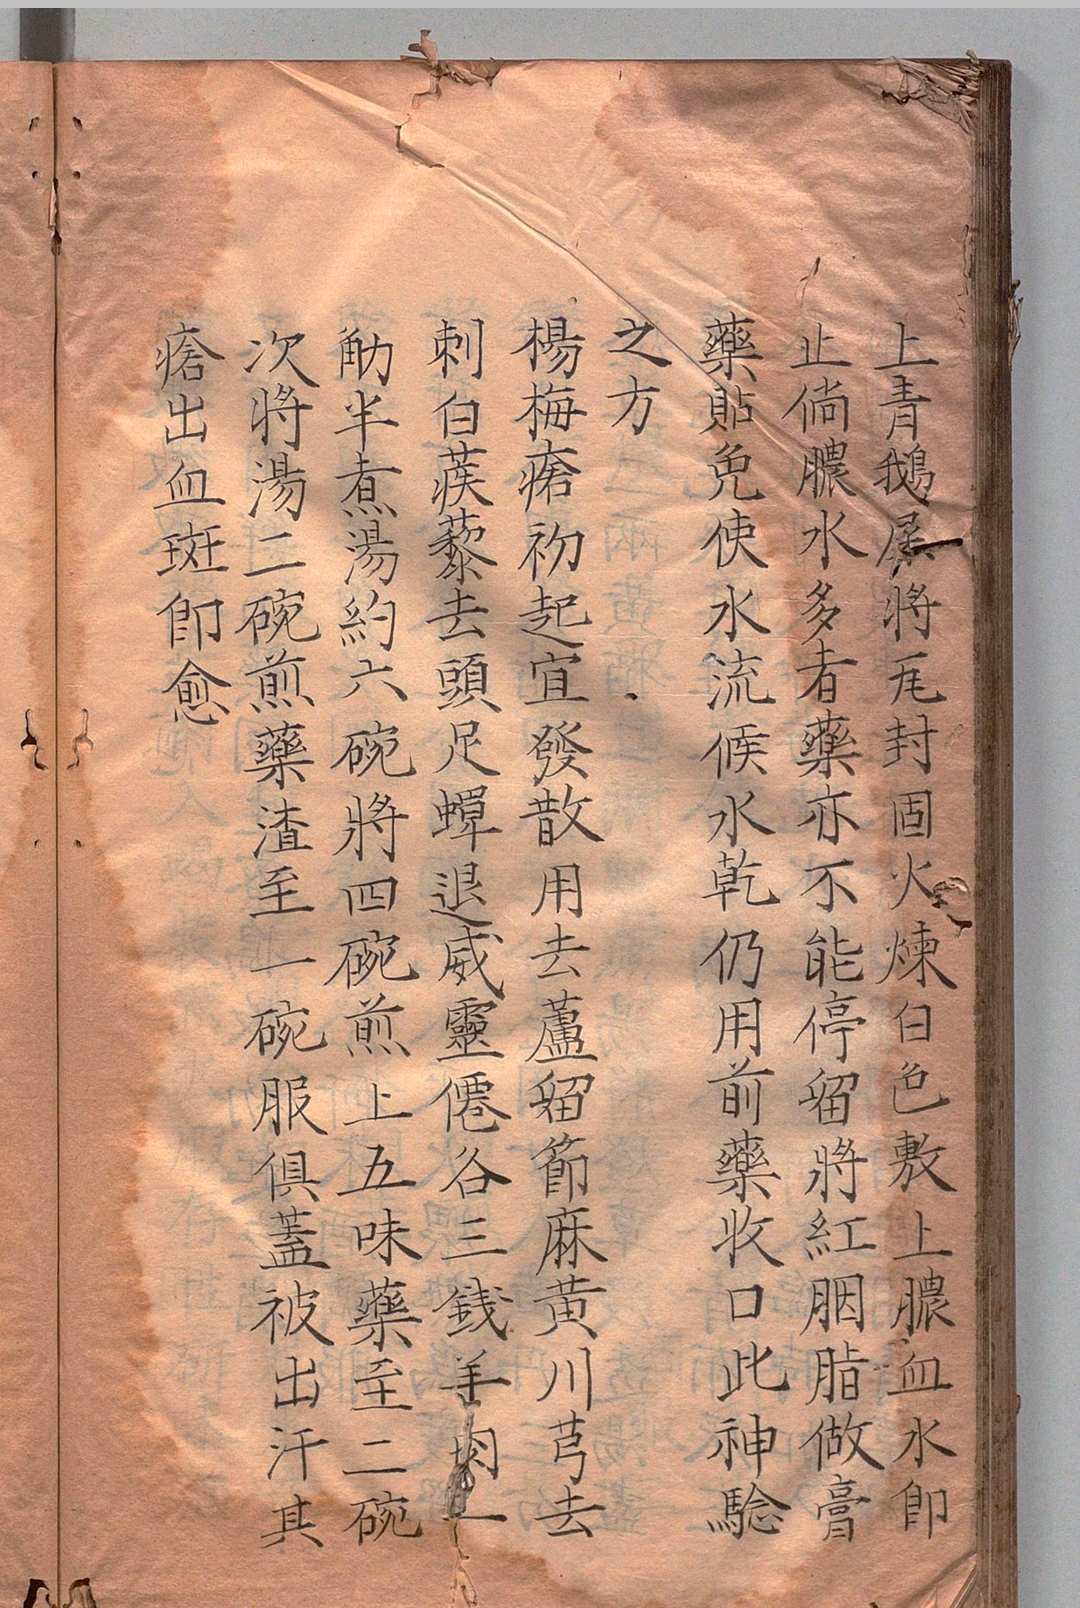 上青鵝屎將瓦封固火煉白色敷上膿血水即
止倘膿水多者藥亦不能停留將紅胭脂做膏
藥貼免使水流候水乾仍用前藥收口此神騐
之方
楊梅瘡初起宜發散用去蘆留節麻黃川芎去
刺白蒺藜去頭足蟬退威靈僊各三錢羊肉一
觔半煮湯約六碗將四碗煎上五味藥至二碗
次將湯二碗煎藥渣至一碗服俱蓋被出汗其
瘡出血斑即愈